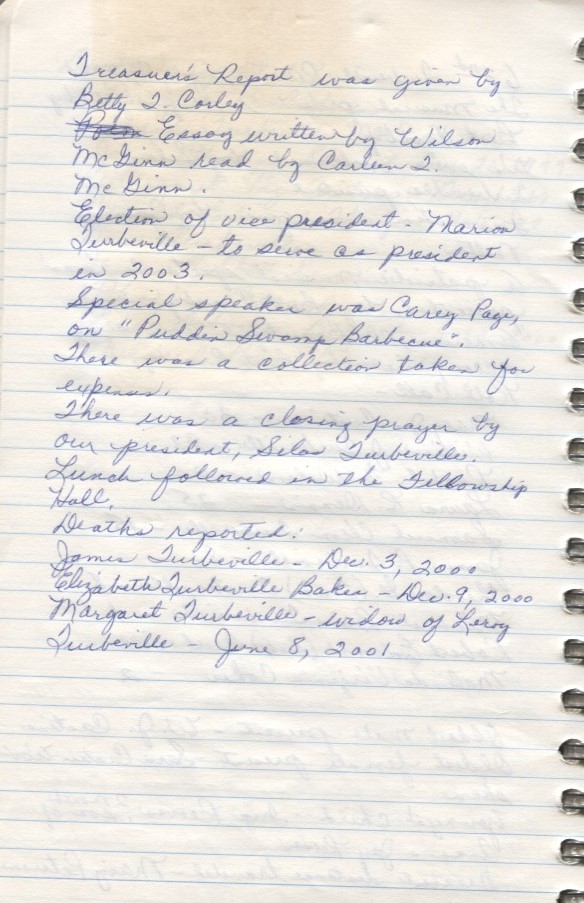 Treasurer's Report was given by
Betty T. Corley
Poem Essay written by Wilson
McGinn read by Carleen T.
McGinn.
Election of vice president - Marion
Turbeville - to serve as president
in 2003.
Special speaker was Carey Page,
on "Puddin Swamp Barbecue".
There was a collection taken for
expenses.
There was a closing prayer by
our president, Silas Turbeville.
Lunch followed in the Fellowship
Hall.
Deaths reported:
James Turbeville - Dec. 3, 2000
Elizabeth Turbeville Baker - Dec. 9, 2000
Margaret Turbeville - widow of Leroy
Turbeville - June 8, 2001